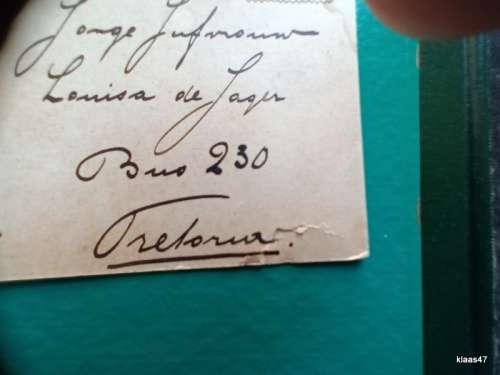 Jonge Jufvrouw
Louisa de Jager
Bus 230
Pretoria.
klaas47